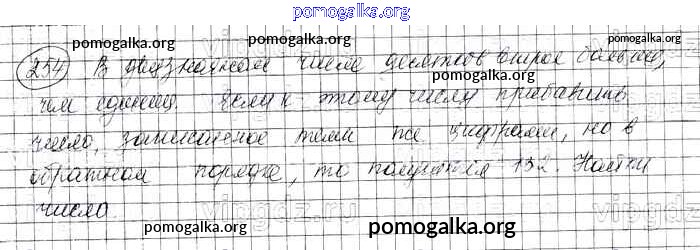 pomogalka.org
pomogalka.org pomogalka.org
254 В двузначном числе десятков втрое больше,
чем единиц. Если к этому числу прибавить
pomogalka.org pomogalka.org
число, записанное теми же цифрами, но в
обратном порядке, то получится 132. Найти
pomogalka.org pomogalka.org
число.
vipgdz.ru
pomogalka.org pomogalka.org